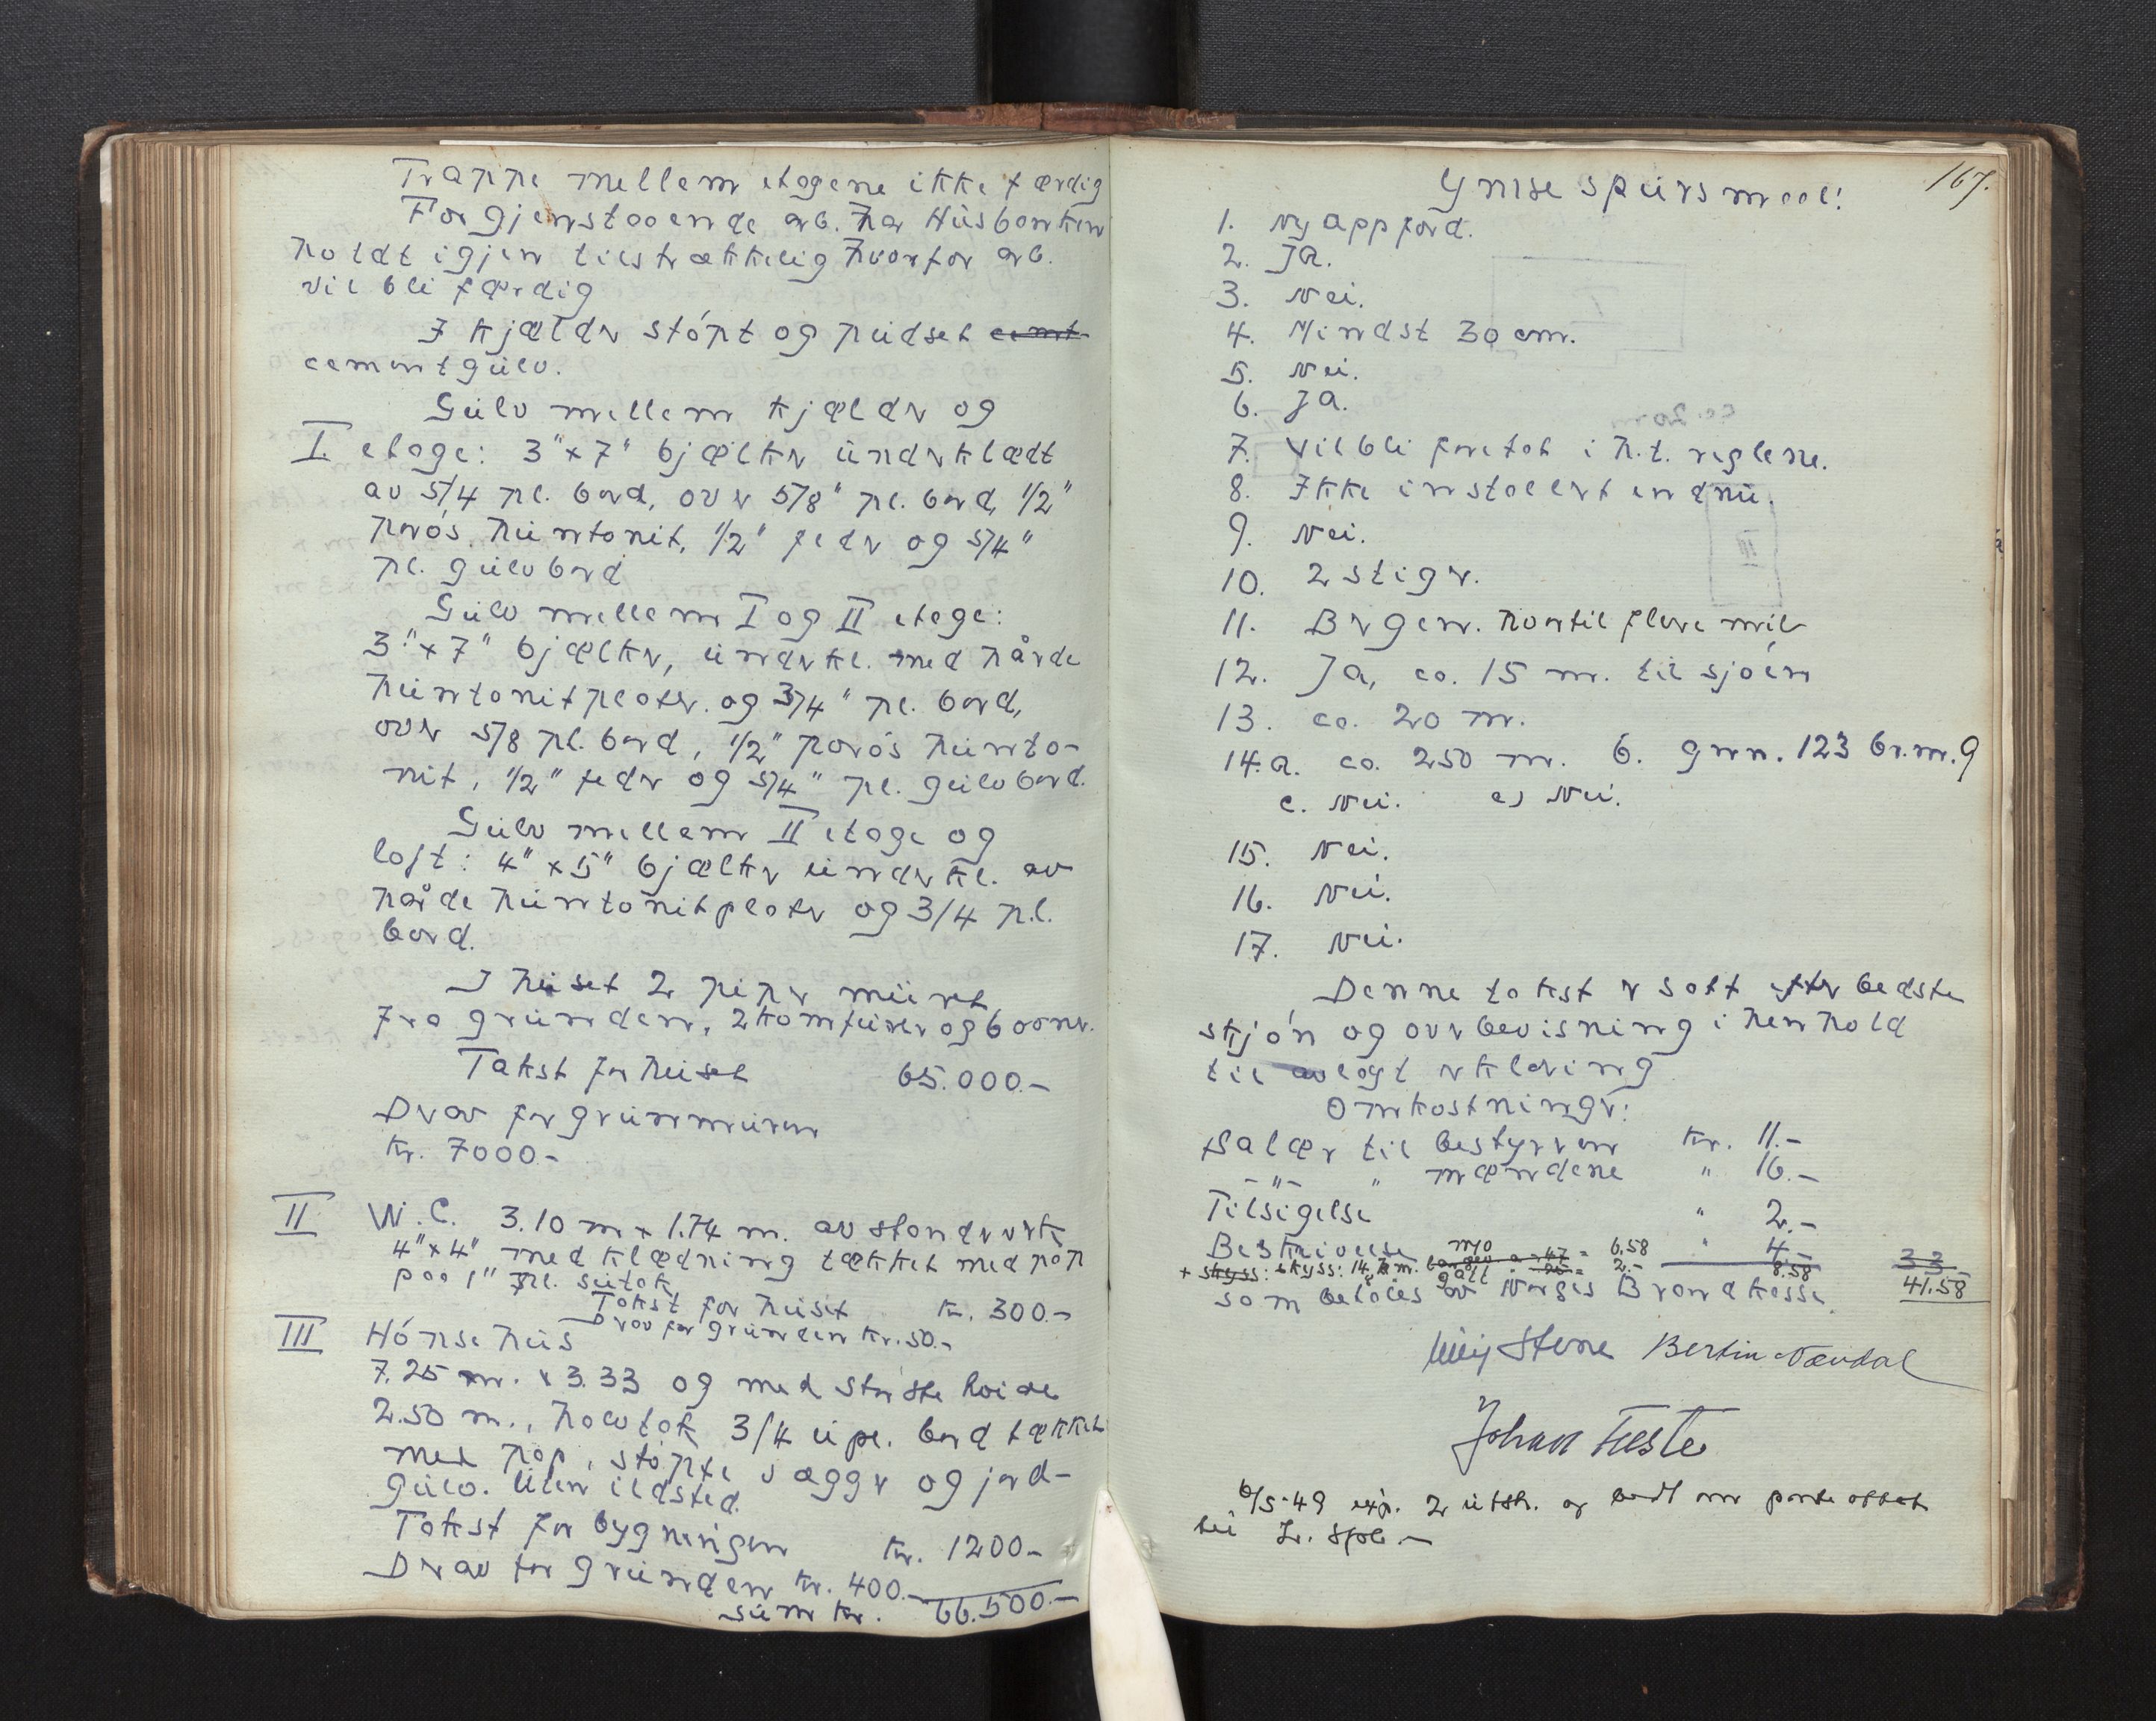 Trappe mellem etagene ikke færdig
For gjenstaaende arb. har Husbanken
holdt igjen tilstrækkelig hvorfor arb.
vil bli færdig
I kjælder stópt og pudset cemt
cementgülv.
Gülv mellem kjælder og
I. etage: 3" x 7" bjælker ünderklædt
av 5/4 pl. bord, over 5/8" pl. bord, 1/2"
porós hüntonit, 1/2" feder og 5/4"
pl. gülvbord
Gülv mellem I og II etage:
3" x 7" bjælker, ünderkl. med hårde
hüntonitplater og 3/4" pl. bord,
over 5/8 pl. bord, 1/2" porós hünto-
nit, 1/2" feder og 5/4" pl. gülvbord.
Gülv mellem II etage og
loft: 4" x 5" bjælker ünderkl. av
hårde hüntonitplater og 3/4 pl.
bord.
I hüset 2 piper müret
fra gründen, 2 komfürer og 6 ovner.
Takst for hüset 65.000.-
Drav for grünmüren
kr. 7000.-
II W.C. 3.10 m x 1.74 m. av stenderverk
4" x 4" med klædning tækket med pap
paa 1" pl. sütak
Takst for hüset kr. 300.-
Drav for gründen kr. 50.-
III Hónsehüs
7.25 m. x 3.33 og med største høide
2.50 m., halvtak 3/4 üpl. bord tækket
med pap, stópte vægger og jord-
gülv. Üten ildsted.
Takst for bygningen kr. 1200.-
Drav for gründen kr. 400.-
Süm kr. 66.500.-
167.
Ymse spürsmaal!
1. Ny oppford.
2. Ja.
3. Nei.
4. Mindst 30 cm.
5. Nei.
6. Ja.
7. Vil bli foretat i h.t. reglene.
8. Ikke installert endnü.
9. Nei.
10. 2 stiger.
11. Bergen. hvortil flere mil
12. Ja, ca. 15 m. til sjóen
13. ca. 20 m.
14. a. ca. 250 m. b. grn. 123 br.nr. 9
c. Nei. e) Nei.
15. Nei.
16. Nei.
17. Nei.
Denne takst er satt efter bedste
skjón og overbevisning i henhold
til avlagt erklæring
Omkostninger:
Salær til bestyreren kr. 11.-
-"- " mændene " 16.-
Tilsigelse " 2.-
Beskrivelse " 4.- 33.-
+ skyss: skyss: 14 km. à 47 = 6.58 gått 2.- 8.58 41.58
som betales av Norges Brandkasse.
Stene Bertin Nævdal
Johan Feste
6/5-49 exp. 2 utskr.